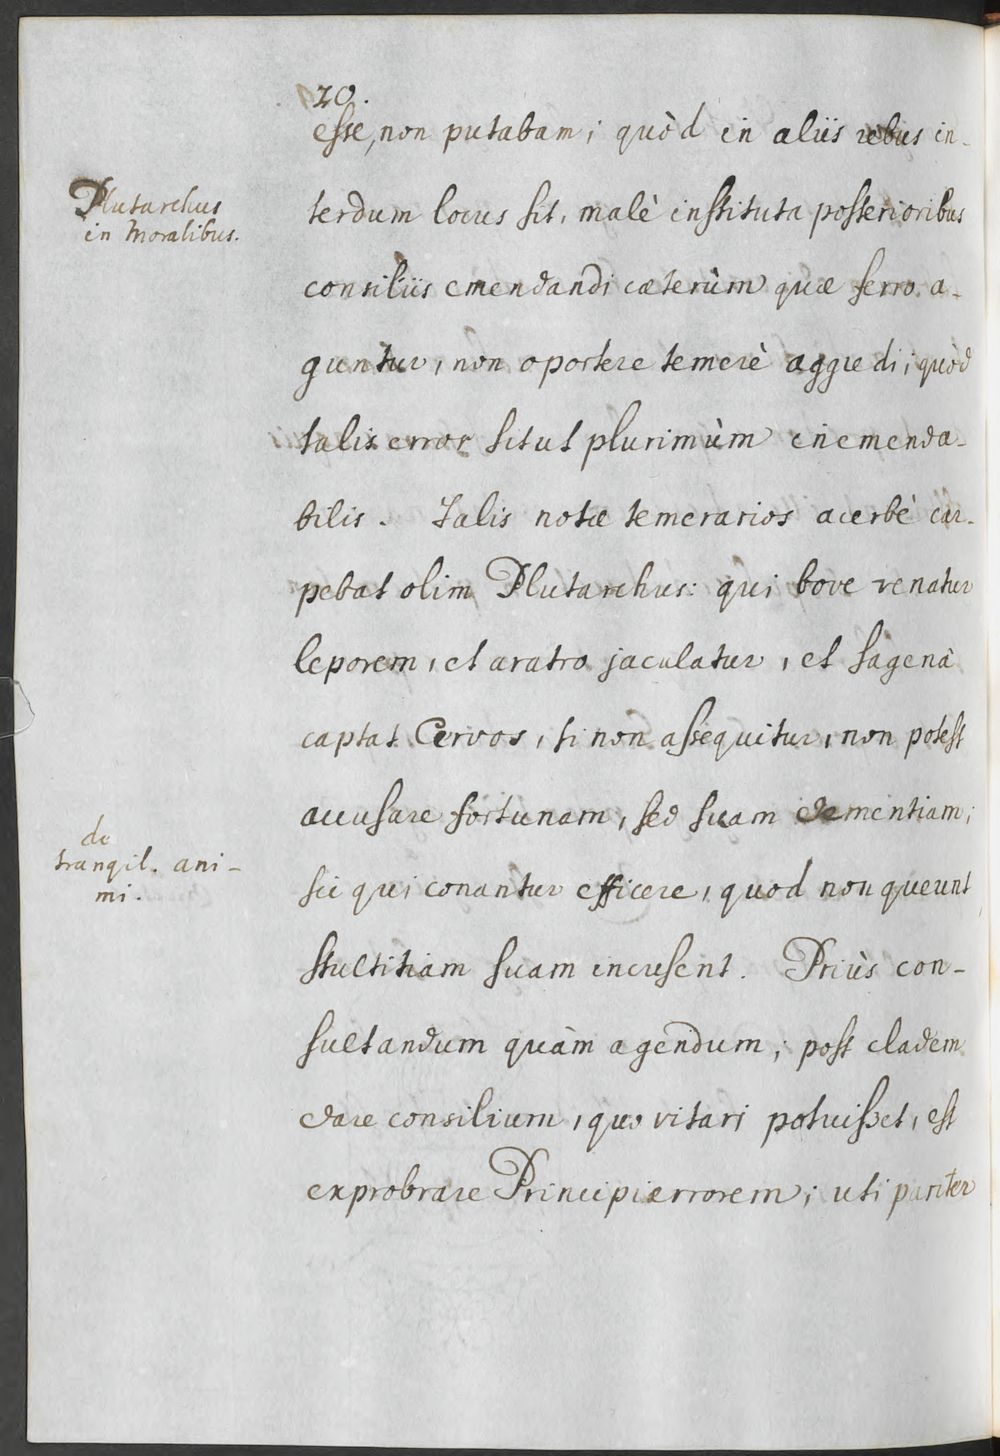 20.
esse, non putabam; quòd in aliis rebus in-
Plutarchus
in Moralibus.
terdum locus sit, malè instituta posterioribus
consiliis emendandi cæterùm quæ ferro a-
guntur, non oportere temerè aggredi; quòd
talis error sit ut plurimùm inemenda-
bilis. Talis notæ temerarios acerbè car-
pebat olim Plutarchus: qui bove venatur
leporem, et aratro jaculatur, et sagenà
captat Cervos, si non assequitur, non potest
accusare fortunam, sed suam dementiam;
de
tranqil. ani-
mi.
sic qui conantur efficere, quod non queunt
stultitiam suam incusent. Priùs con-
sultandum quàm agendum; post cladem
dare consilium, quo vitari potuisset, est
exprobrare Principi errorem; uti pariter